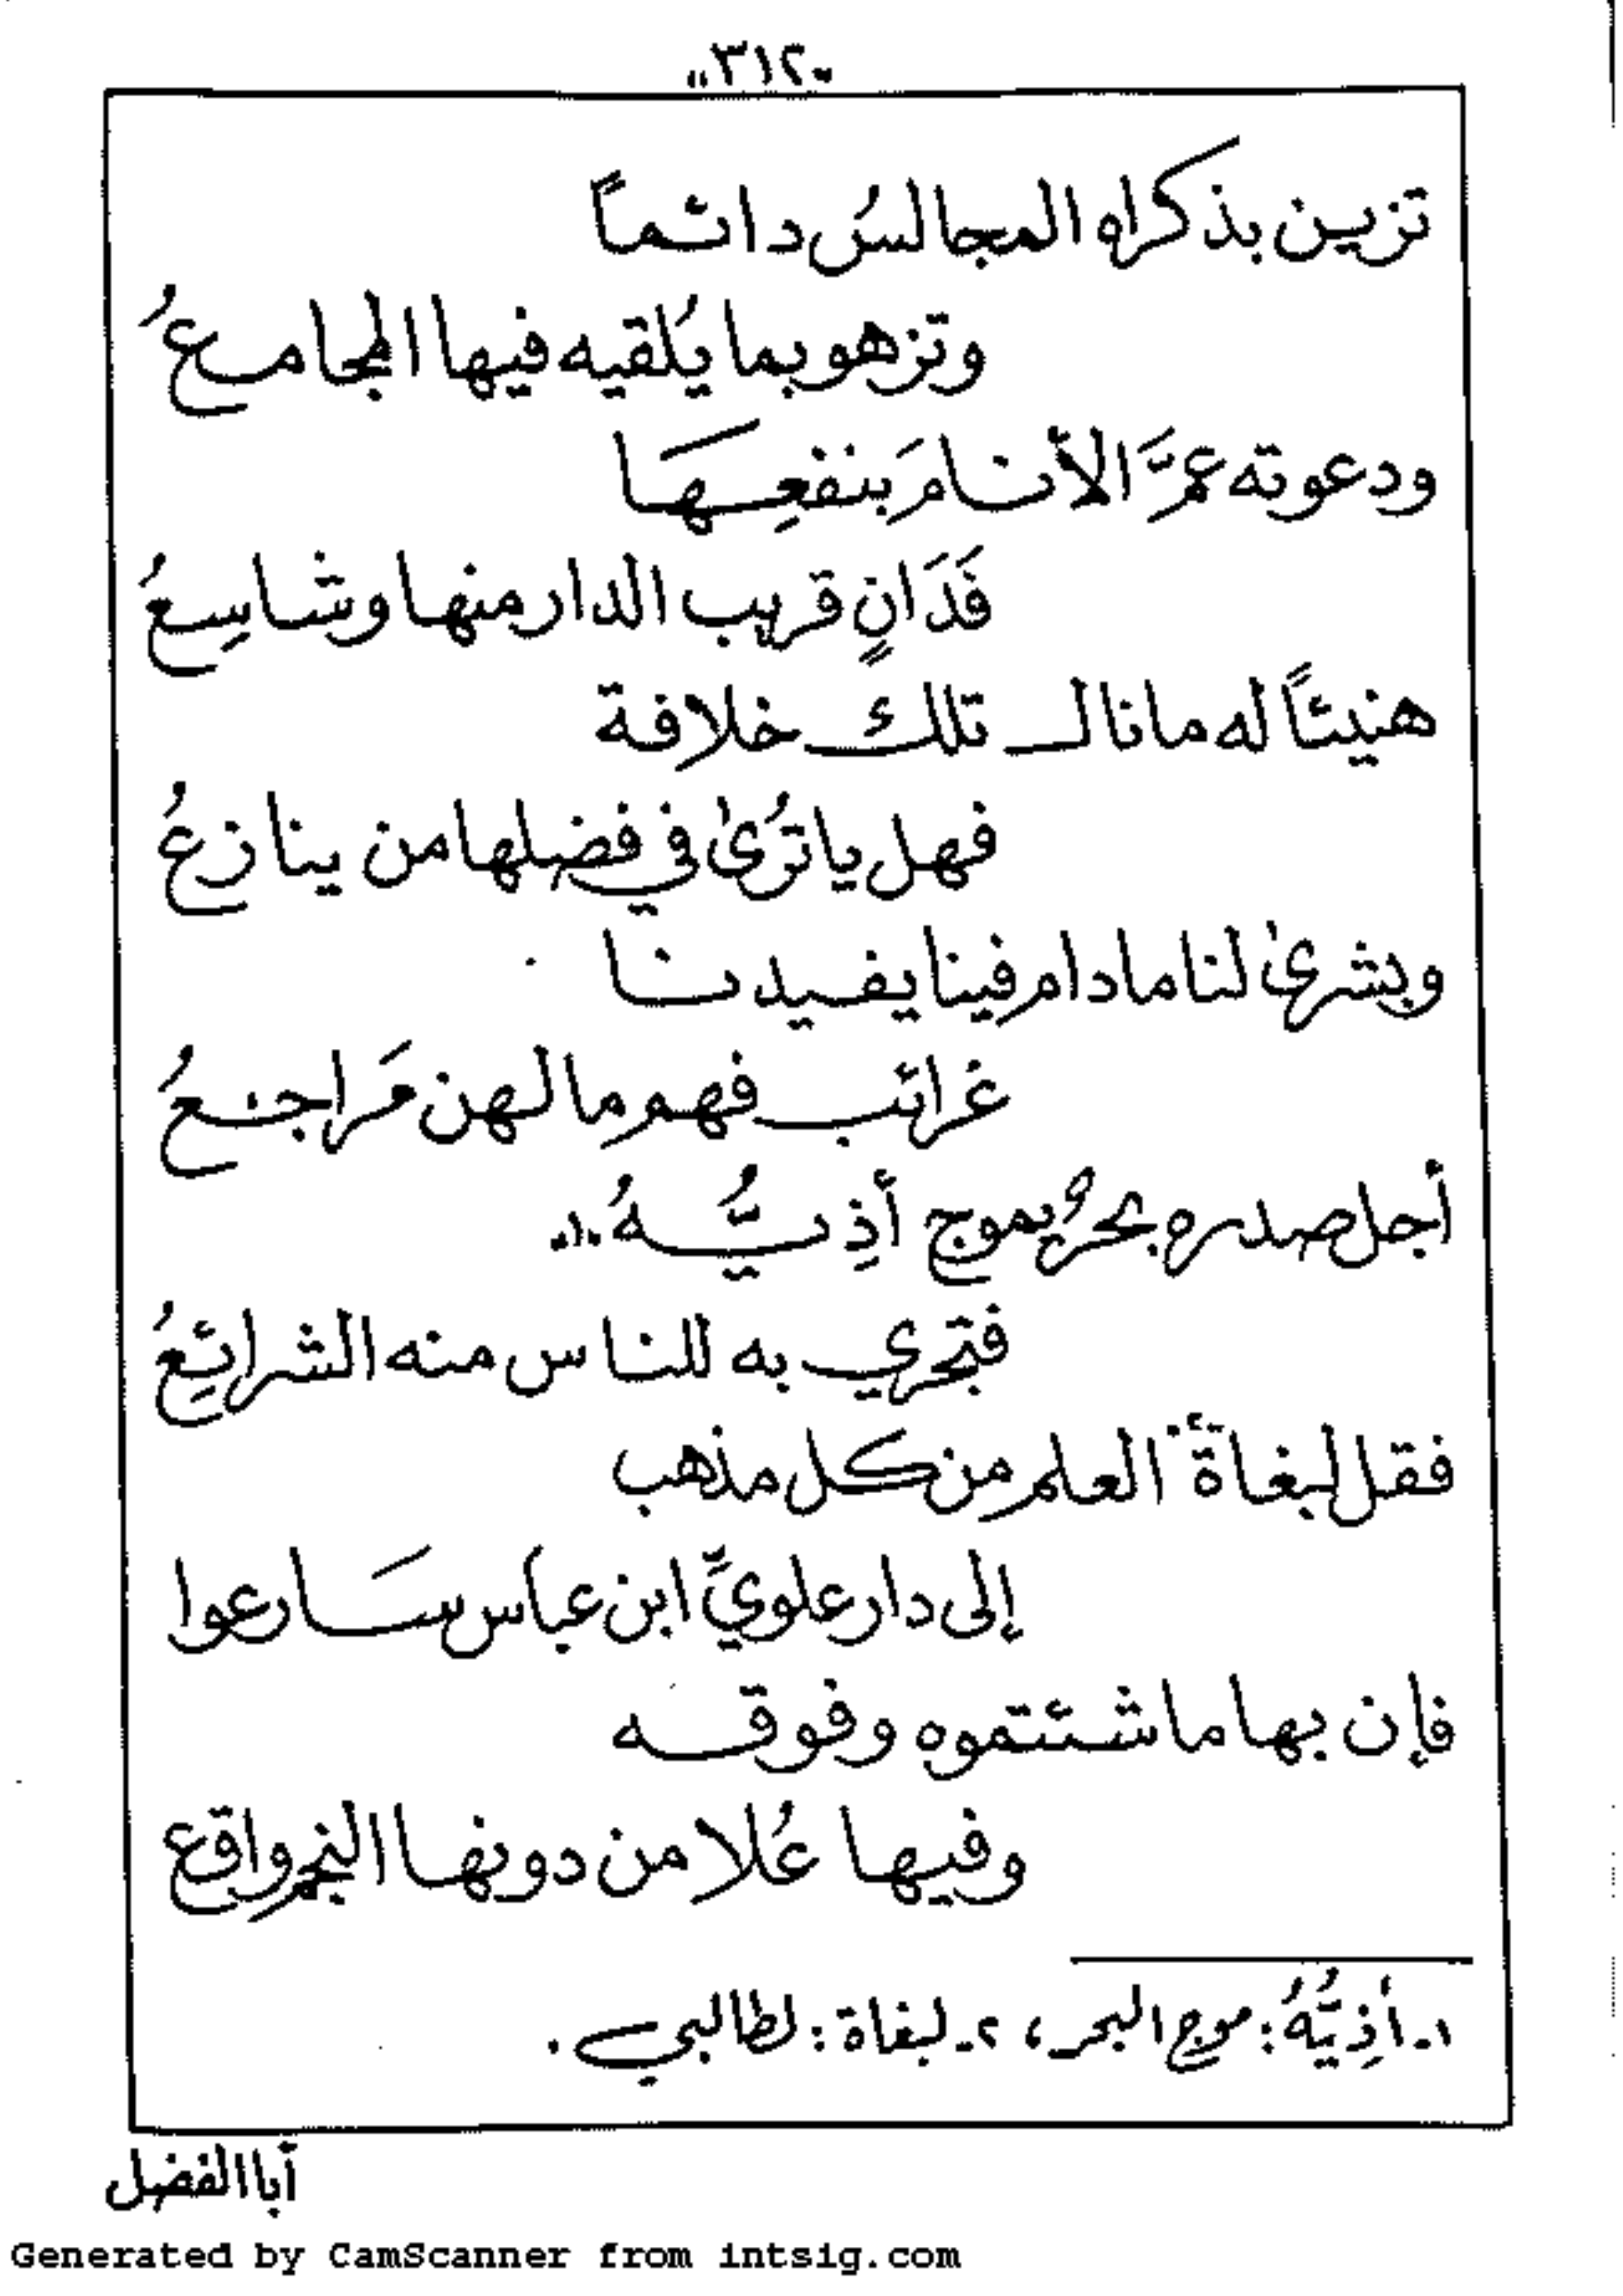 ٣١٢
تزين بذكراه المجالسُ دائماً
وتزهو بما يُلقيه فيها المجامعُ
ودعوته عمَّ الأنامَ بنفعِهَا
فَدَانٍ قريب الدار منها وشاسِعُ
هنيئاً له ما نال تلك خلافة
فهل يا تُرىٰ في فضلها من ينازعُ
وبشرىٰ لنا ما دام فينا يفيدنا
غرائب فهوم ما لهن مَراجعُ
أجل صدره بحرٌ يموج أذِيُّهُ ١.
فتجري به للناس منه الشرائِعُ
فقل لبغاة ٢ العلم من كل مذهب
إلى دار علويِّ ابن عباس سَارعوا
فإن بها ما شئتموه وفوقه
وفيها عُلا من دونها النجم واقع
١- أذِيُّهُ: موج البحر، ٢- لبغاة: لطالبي.
أبا الفضل
Generated by CamScanner from intsig.com